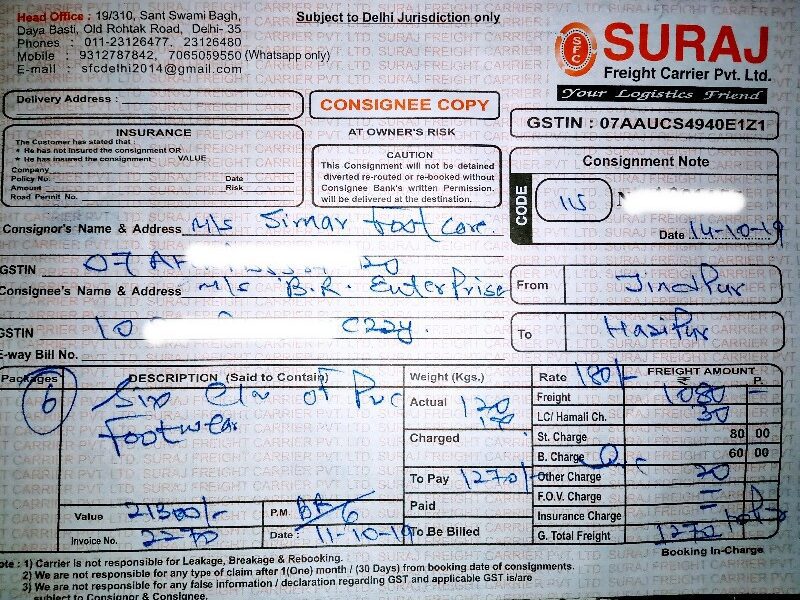 Head Office : 19/310, Sant Swami Bagh,
Daya Basti, Old Rohtak Road, Delhi- 35
Phones : 011-23126477, 23126480
Mobile : 9312787842, 7065059550 (Whatsapp only)
E-mail : sfcdelhi2014@gmail.com
Subject to Delhi Jurisdiction only
SFC
SURAJ
Freight Carrier Pvt. Ltd.
Your Logistics Friend
Delivery Address :
CONSIGNEE COPY
GSTIN : 07AAUCS4940E1Z1
INSURANCE
The Customer has stated that :
* He has not Insured the consignment OR
* He has insured the consignment VALUE
Company
Policy No. Date
Amount Risk
Road Permit No.
AT OWNER'S RISK
CAUTION
This Consignment will not be detained
diverted re-routed or re-booked without
Consignee Bank's written Permission.
will be delivered at the destination.
Consignment Note
CODE 115 N
Date 14-10-19
Consignor's Name & Address M/s Simar Foot Care.
GSTIN 07 A 20
Consignee's Name & Address M/s B.R. Enterprise
GSTIN 10
E-way Bill No.
From Jindpur
To Hazipur
Packages DESCRIPTION (Said to Contain)
6 Six Ctn of Pvc
Footwear
Value 21300/- P.M. BR/6
Invoice No. 2270 Date : 11-10-19
Weight (Kgs.)
Actual 120
Charged
To Pay 1270/-
Paid
To Be Billed
Rate 180/- FREIGHT AMOUNT
₹ P.
Freight 1080 -
LC/ Hamali Ch. 30
St. Charge 80 00
B. Charge 60 00
Other Charge 20
F.O.V. Charge =
Insurance Charge
G. Total Freight 1270
Booking In-Charge
Note : 1) Carrier is not responsible for Leakage, Breakage & Rebooking.
2) We are not responsible for any type of claim after 1(One) month / (30 Days) from booking date of consignments.
3) We are not responsible for any false information / declaration regarding GST and applicable GST is/are
subject to Consignor & Consignee.